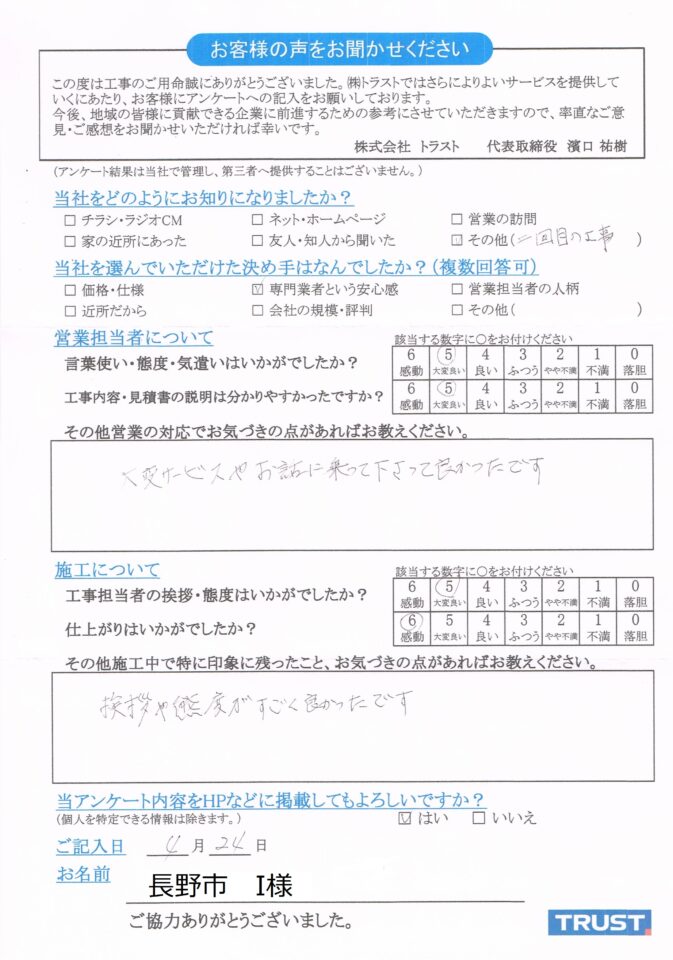 お客様の声をお聞かせください
この度は工事のご用命誠にありがとうございました。㈱トラストではさらによりよいサービスを提供して
いくにあたり、お客様にアンケートへの記入をお願いしております。
今後、地域の皆様に貢献できる企業に前進するための参考にさせていただきますので、率直なご意
見・ご感想をお聞かせいただければ幸いです。
株式会社 トラスト 代表取締役 濱口 祐樹
(アンケート結果は当社で管理し、第三者へ提供することはございません。)
当社をどのようにお知りになりましたか？
□ チラシ・ラジオCM □ ネット・ホームページ □ 営業の訪問
□ 家の近所にあった □ 友人・知人から聞いた ☑ その他(二回目の工事)
当社を選んでいただけた決め手はなんでしたか？(複数回答可)
□ 価格・仕様 ☑ 専門業者という安心感 □ 営業担当者の人柄
□ 近所だから □ 会社の規模・評判 □ その他( )
営業担当者について 該当する数字に○をお付けください
言葉使い・態度・気遣いはいかがでしたか？ 6 5 4 3 2 1 0
感動 大変良い 良い ふつう やや不満 不満 落胆
工事内容・見積書の説明は分かりやすかったですか？ 6 5 4 3 2 1 0
感動 大変良い 良い ふつう やや不満 不満 落胆
その他営業の対応でお気づきの点があればお教えください。
大変サービスやお話に乗って下さって良かったです
施工について 該当する数字に○をお付けください
工事担当者の挨拶・態度はいかがでしたか？ 6 5 4 3 2 1 0
感動 大変良い 良い ふつう やや不満 不満 落胆
仕上がりはいかがでしたか？ 6 5 4 3 2 1 0
感動 大変良い 良い ふつう やや不満 不満 落胆
その他施工中で特に印象に残ったこと、お気づきの点があればお教えください。
挨拶や態度がすごく良かったです
当アンケート内容をHPなどに掲載してもよろしいですか？
(個人を特定できる情報は除きます。) ☑ はい □ いいえ
ご記入日 4 月 24 日
お名前 長野市 I様
ご協力ありがとうございました。
TRUST.